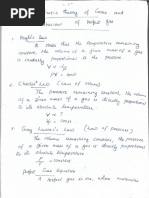 Kinetic Theory of Gases and
Behaviour of Perfect Gas
1. Boyle's law
It states that the temperature remaining
constant, the volume of a given mass of a gas
is inversely proportional to the pressure
PV = const
2. Charles' Law (law of volume)
The pressure remaining constant, the volume
of a given mass of a gas is directly proportional
to its absolute temperature.
V ∝ T
3. Gay Lussac's law (law of pressure)
The volume remaining constant, the pressure
of a given mass of a gas is directly proportional
to its absolute temperature.
= constant
Perfect Gas Equation
A perfect gas is one, whose molecules